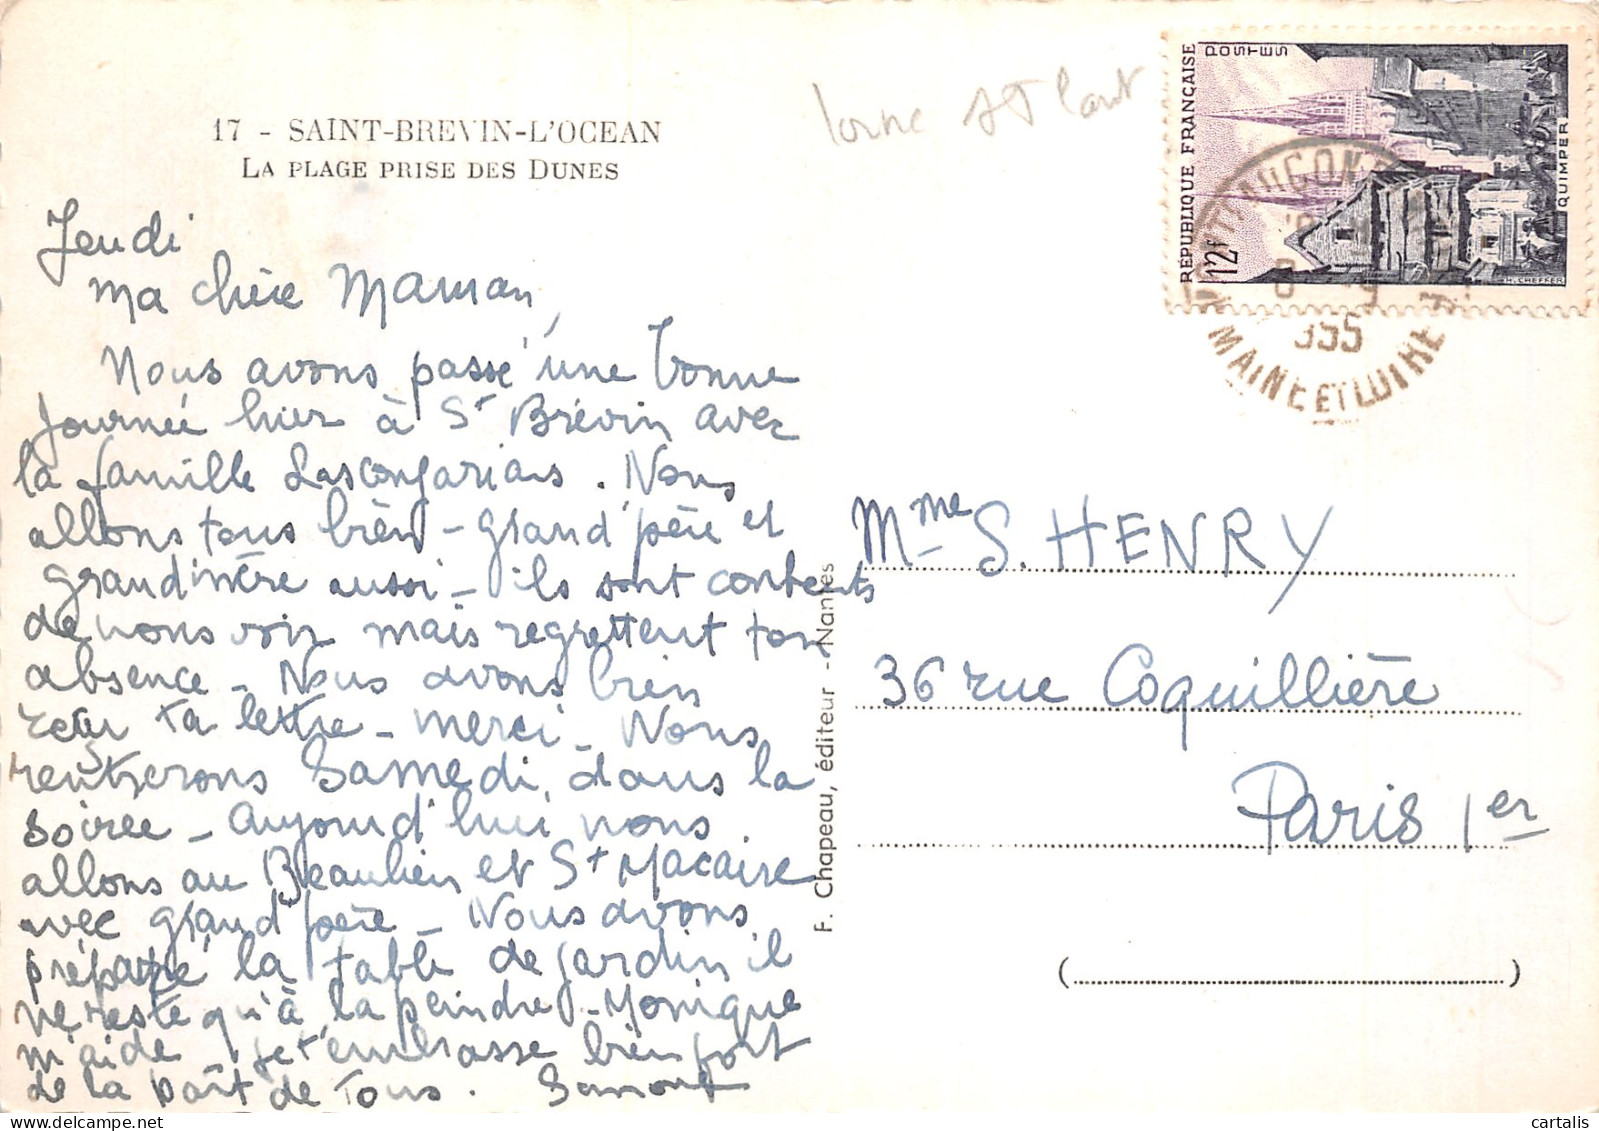 17 - SAINT-BREVIN-L'OCEAN
LA PLAGE PRISE DES DUNES
Jeudi
Ma chère Maman,
Nous avons passé une bonne
journée hier à St Brévin avec
la famille. Nous
allons tous bien - grand'père et
grandmère aussi - ils sont contents
de nous voir mais regrettent ton
absence - Nous avons bien
reçu ta lettre - merci - Nous
rentrerons Samedi dans la
soirée - Aujourd'hui nous
allons au Beaulieu et St Macaire
avec grand'père - Nous avons
préparé la table de jardin il
ne reste qu'à la peindre - Monique
m'aide - Je t'embrasse bien fort
de la part de Tous.
F. Chapeau, éditeur - Nantes
RÉPUBLIQUE FRANÇAISE
POSTES
12F
QUIMPER
H. CHEFFER
955
MAINE ET LOIRE
Mme S. HENRY
36 rue Coquillière
Paris 1er
( )
cartalis